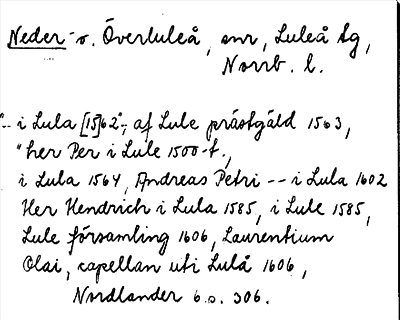 Neder- o. Överluleå, snr, Luleå tg,
Norrb. l.
"-- i Lula [15]62"-, af Lule prästgäld 1563,
"her Per i Lule 1500-t.,
i Lula 1564, Andreas Petri -- i Lula 1602
Her Hendrich i Lula 1585, i Lule 1585,
Lule församling 1606, Laurentium
Olai, capellan uti Lulå 1606,
Nordlander 6 o. 306.